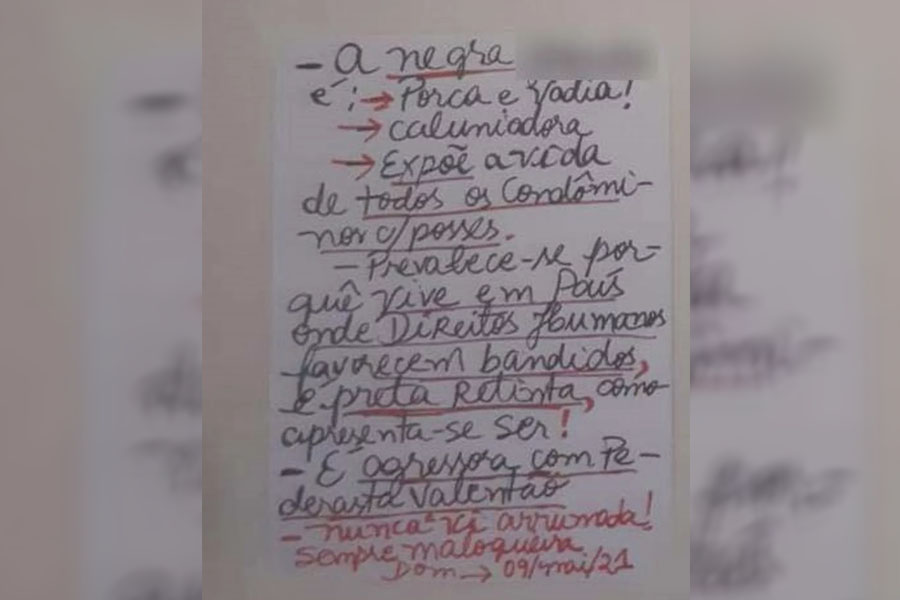 - A negra
é: → Porca e Vadia!
→ caluniadora
→ Expõe a vida
de todos os Condômi-
nos c/posses.
- Prevalece-se por-
quê vive em País
onde Direitos Humanos
favorecem bandidos,
é preta Retinta, como
apresenta-se ser!
- É agressora com Pe-
derasta Valentão
- nunca vi arrumada!
Sempre maloqueira.
Dom → 09/mai/21